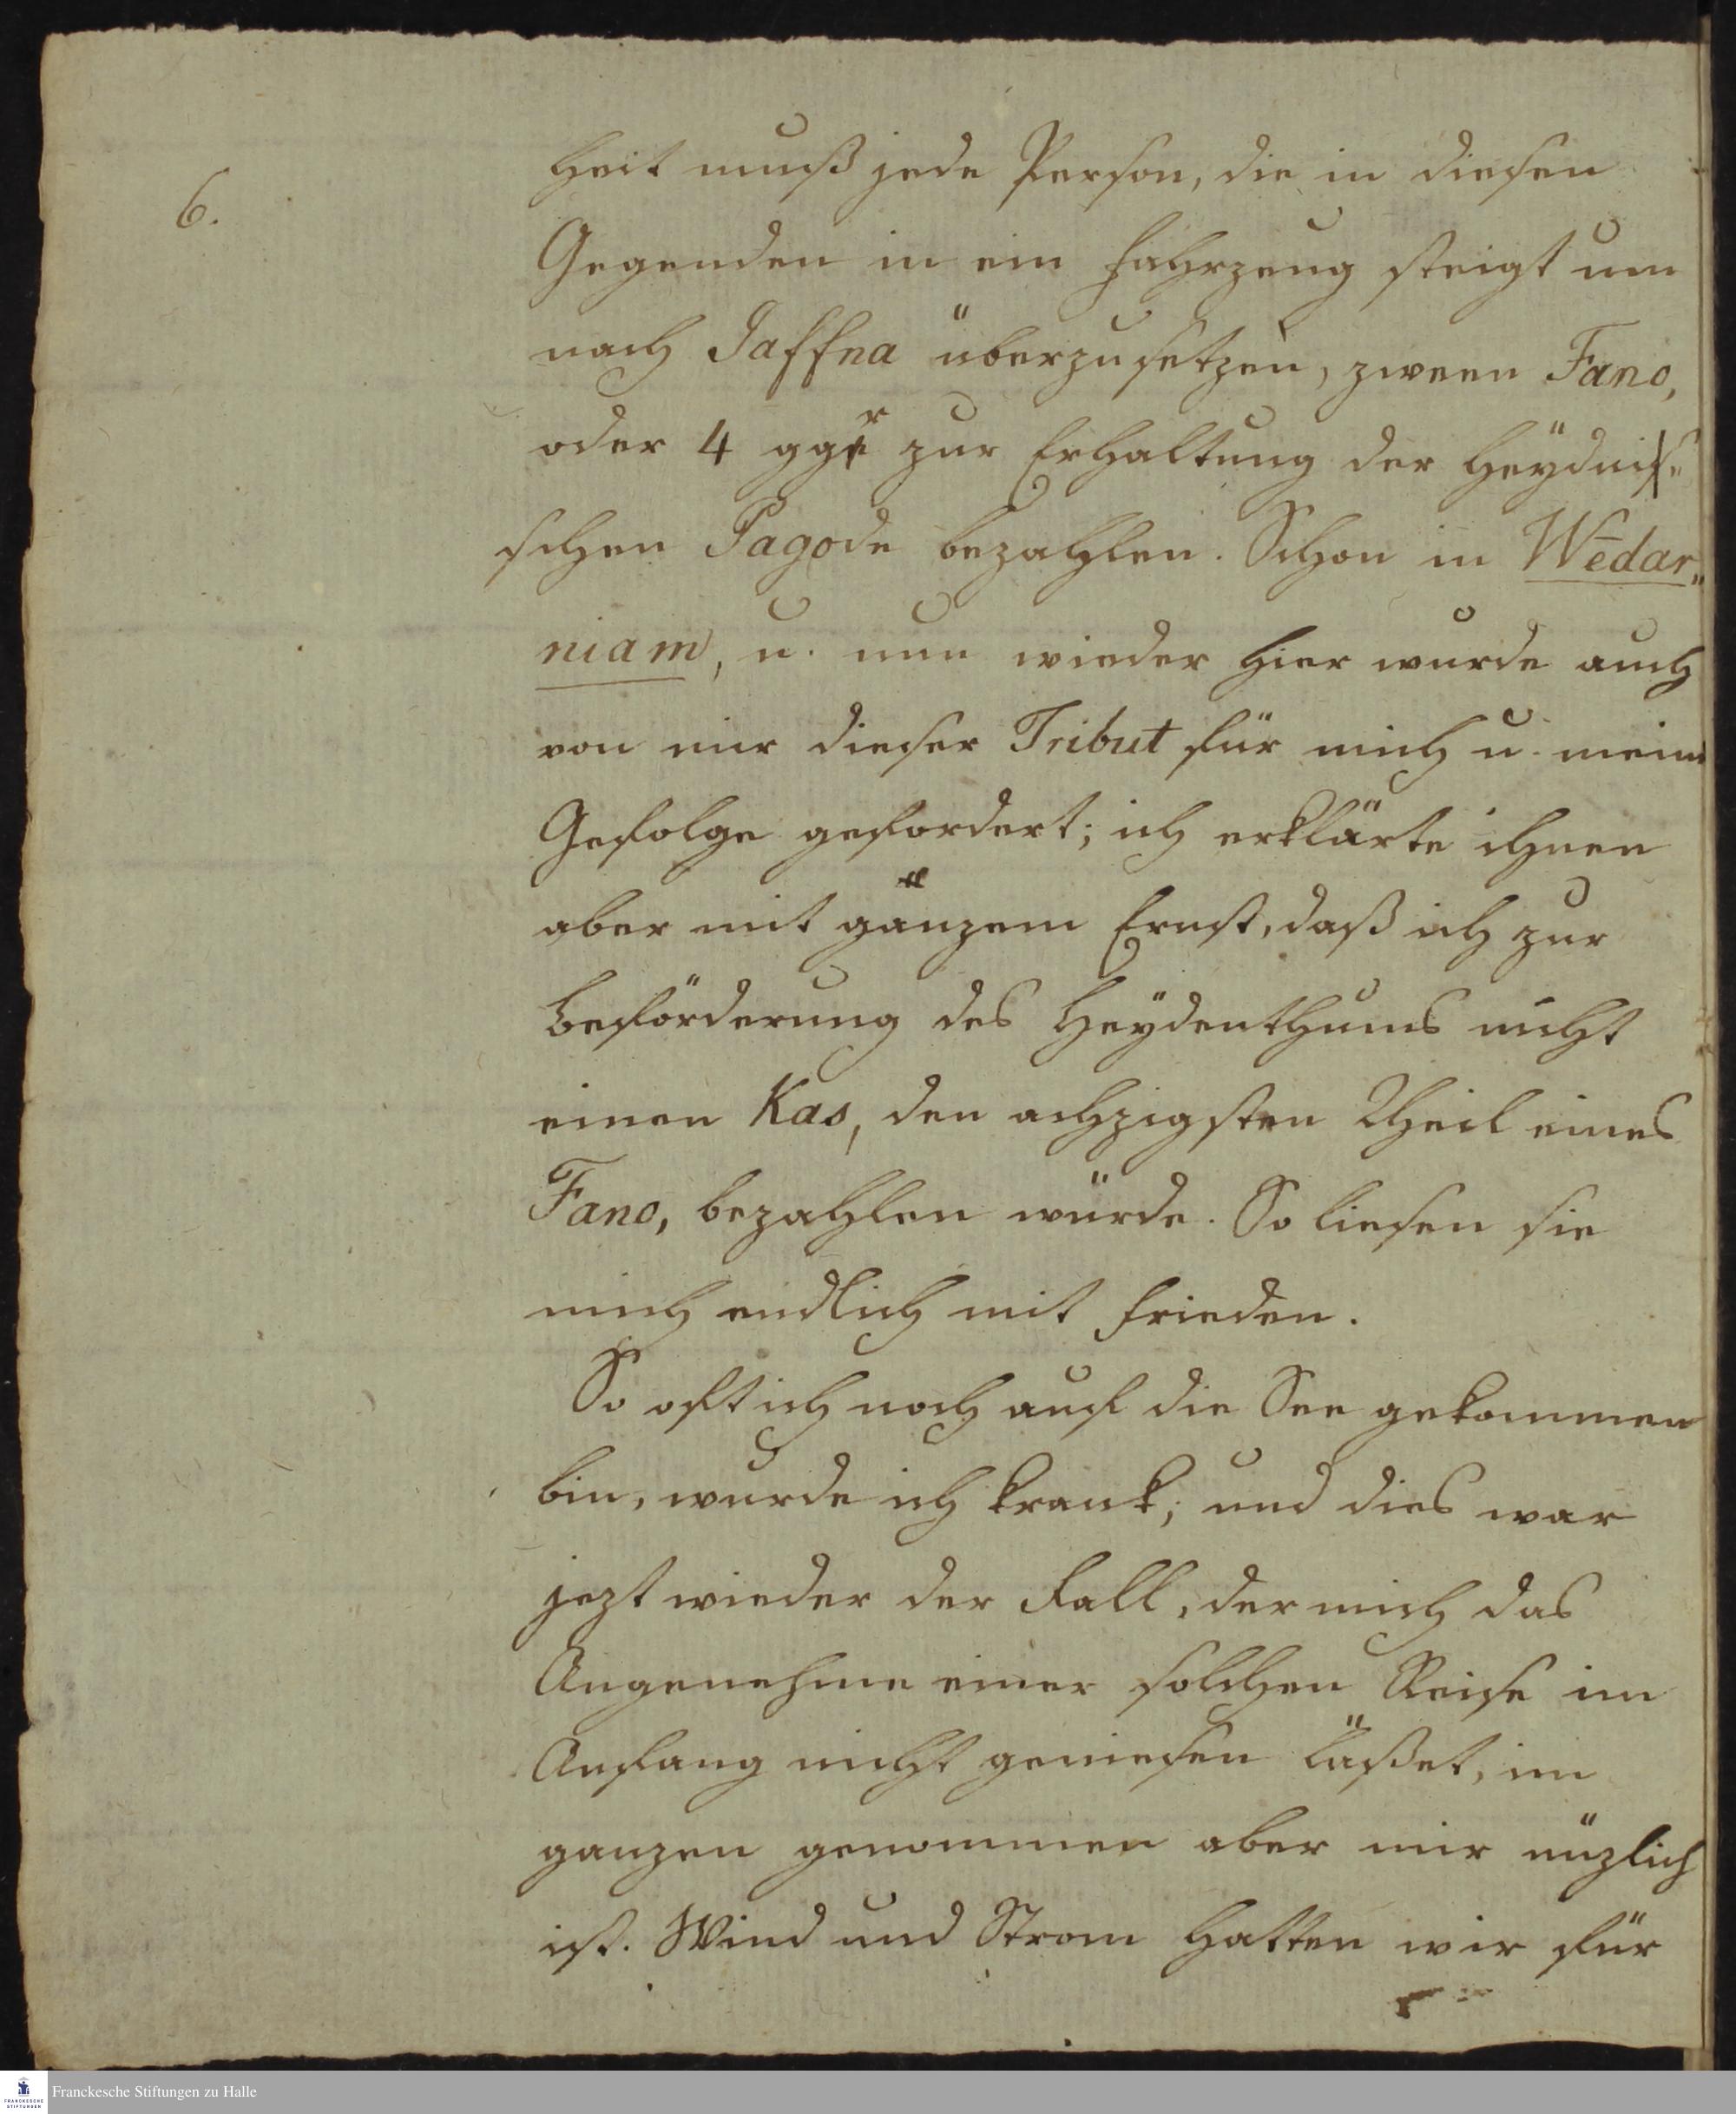 6.
heit muß jede Person, die in diesen
Gegenden in ein Fahrzeug steigt um
nach Jaffna überzusetzen, zween Fano,
oder 4 ggr zur Erhaltung der Heydni-
schen Pagode bezahlen. Schon in Wēdar„
niam, u. nun wieder hier wurde auch
von mir dieser Tribut für mich u. mein
Gefolge gefordert; ich erklärte ihnen
aber mit ganzem Ernst, daß ich zur
Beförderung des Heÿdenthums nicht
einen Kas, den achzigsten Theil eines
Fano, bezahlen würde. So liesen sie
mich endlich mit Frieden.
So oft ich noch auf die See gekommen
bin, wurde ich krank; und dies war
jezt wieder der Fall, der mich das
Angenehme einer solchen Reise im
Anfang nicht geniesen läßet, im
ganzen genommen aber mir nüzlich
ist. Wind und Strom hatten wir für
Franckesche Stiftungen zu Halle
FRANCKESCHE
STIFTUNGEN